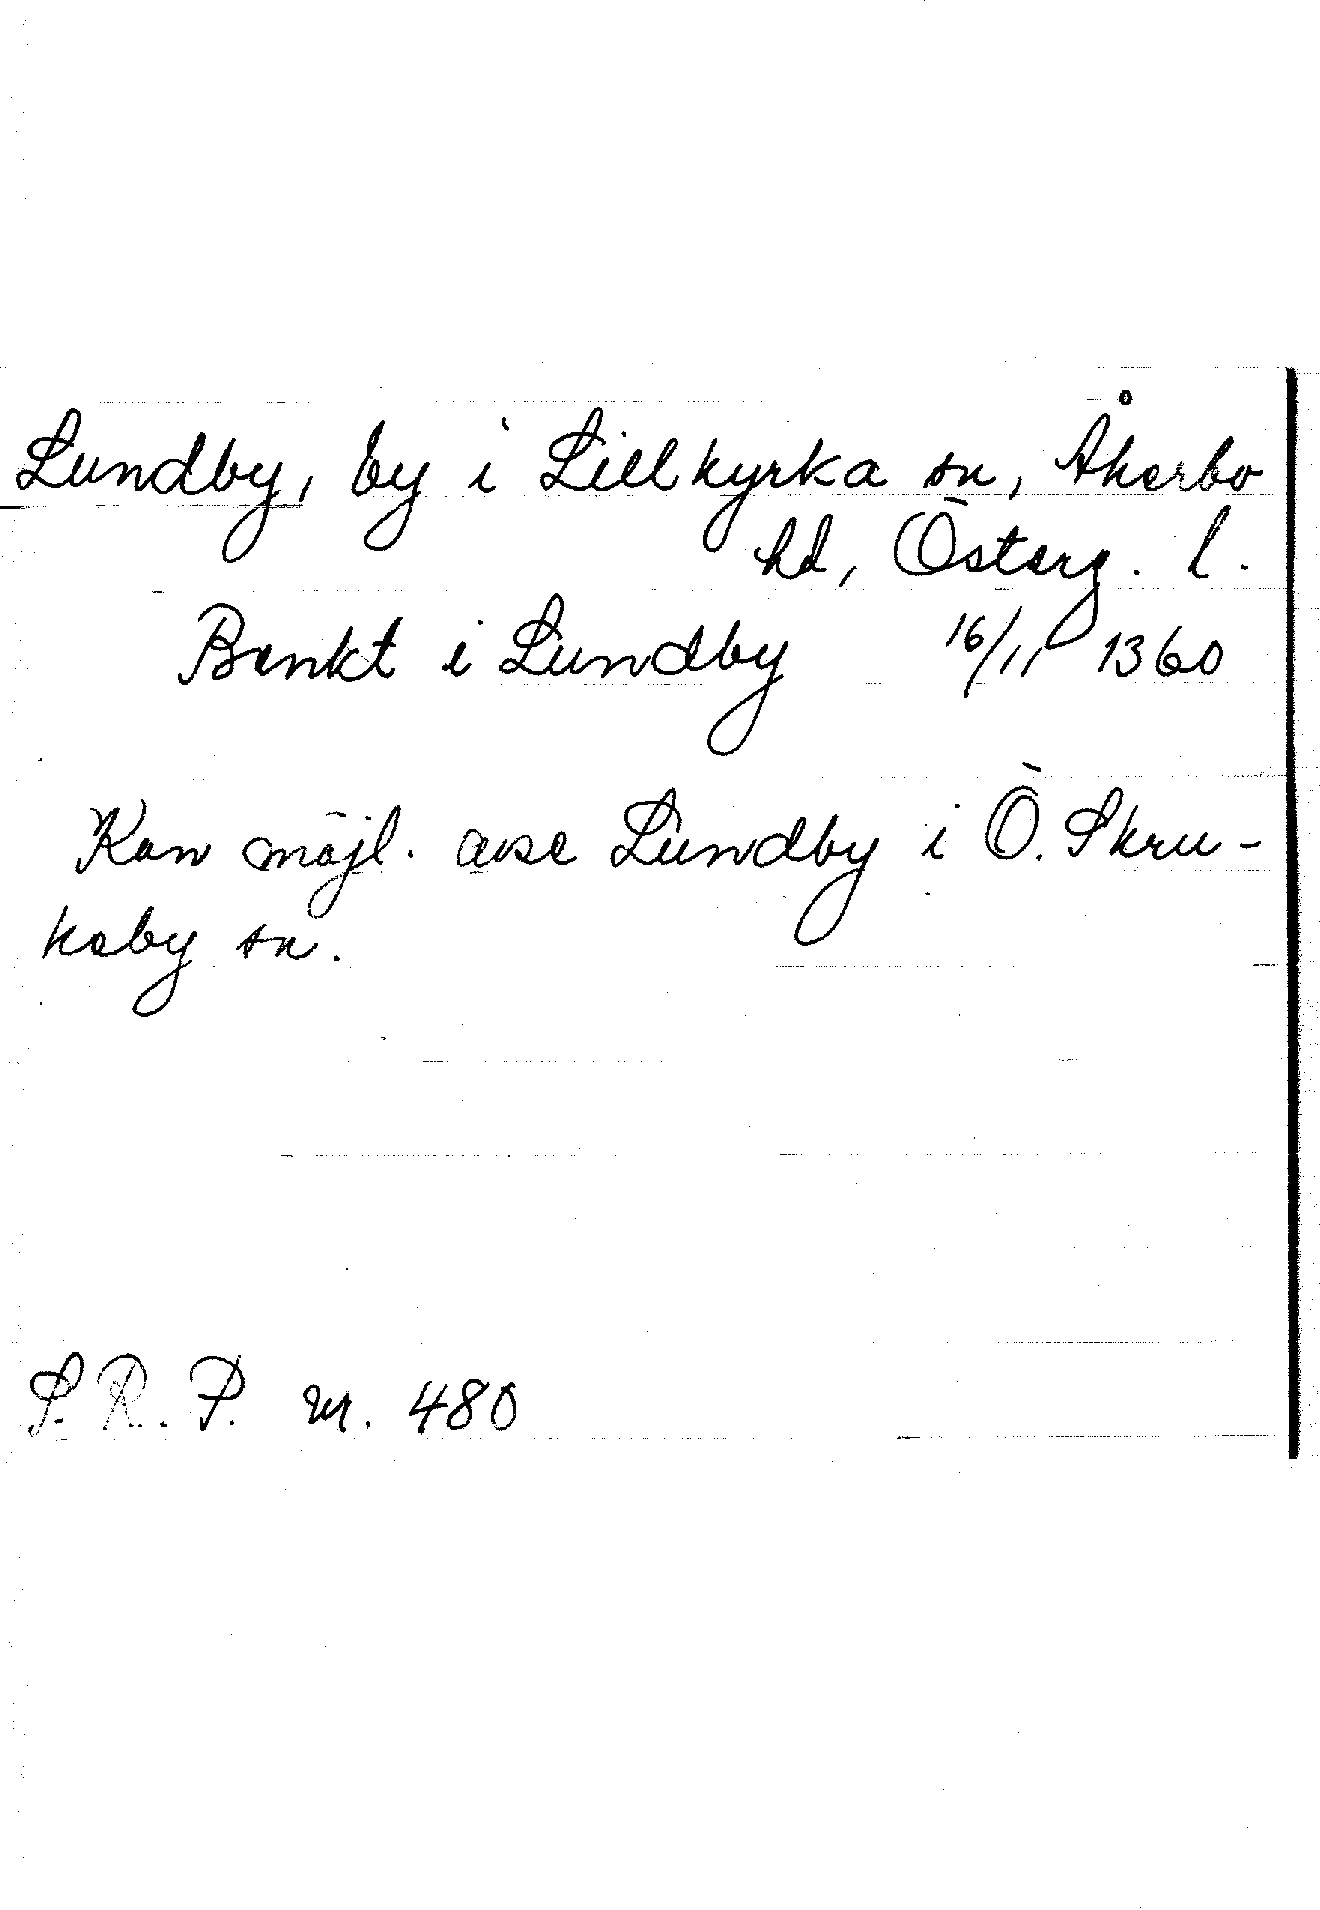 Lundby, by i Lillkyrka sn, Åkerbo
hd, Österg. l.
Benkt i Lundby 16/11 1360
Kan möjl. avse Lundby i Ö. Skru-
keby sn.
S.R.P. nr. 480